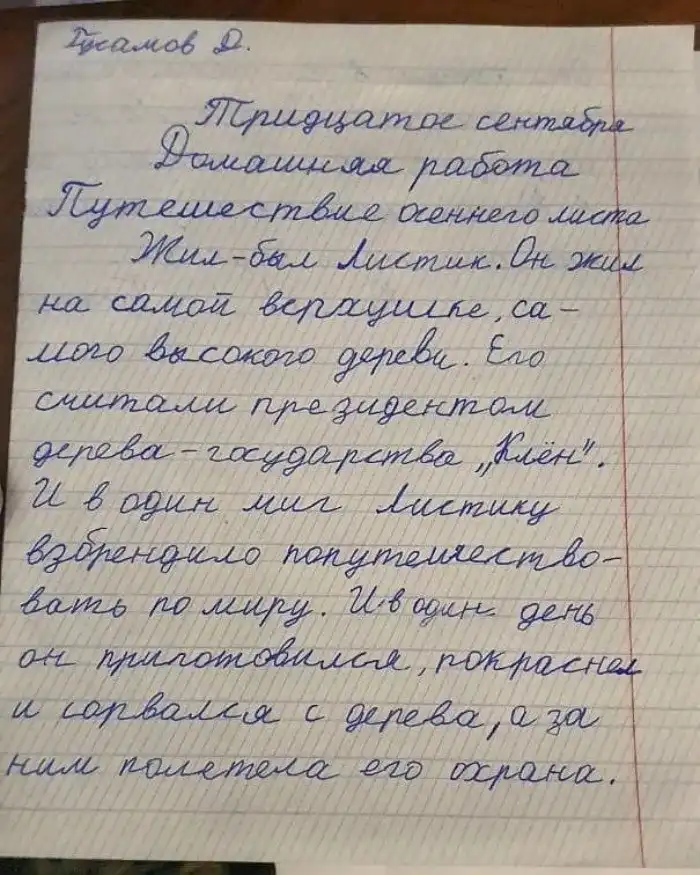 Д.
Тридцатое сентября
Домашняя работа
Путешествие осеннего листа
Жил-был Листик. Он жил
на самой верхушке, са-
мого высокого дерева. Его
считали президентом
дерева-государства „Клён".
И в один миг Листику
взбрендило попутешество-
вать по миру. И в один день
он приготовился, покраснел
и сорвался с дерева, а за
ним полетела его охрана.